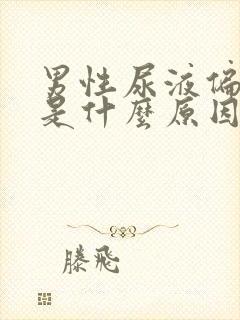 男性尿液偏
是什麼原因
滕飛